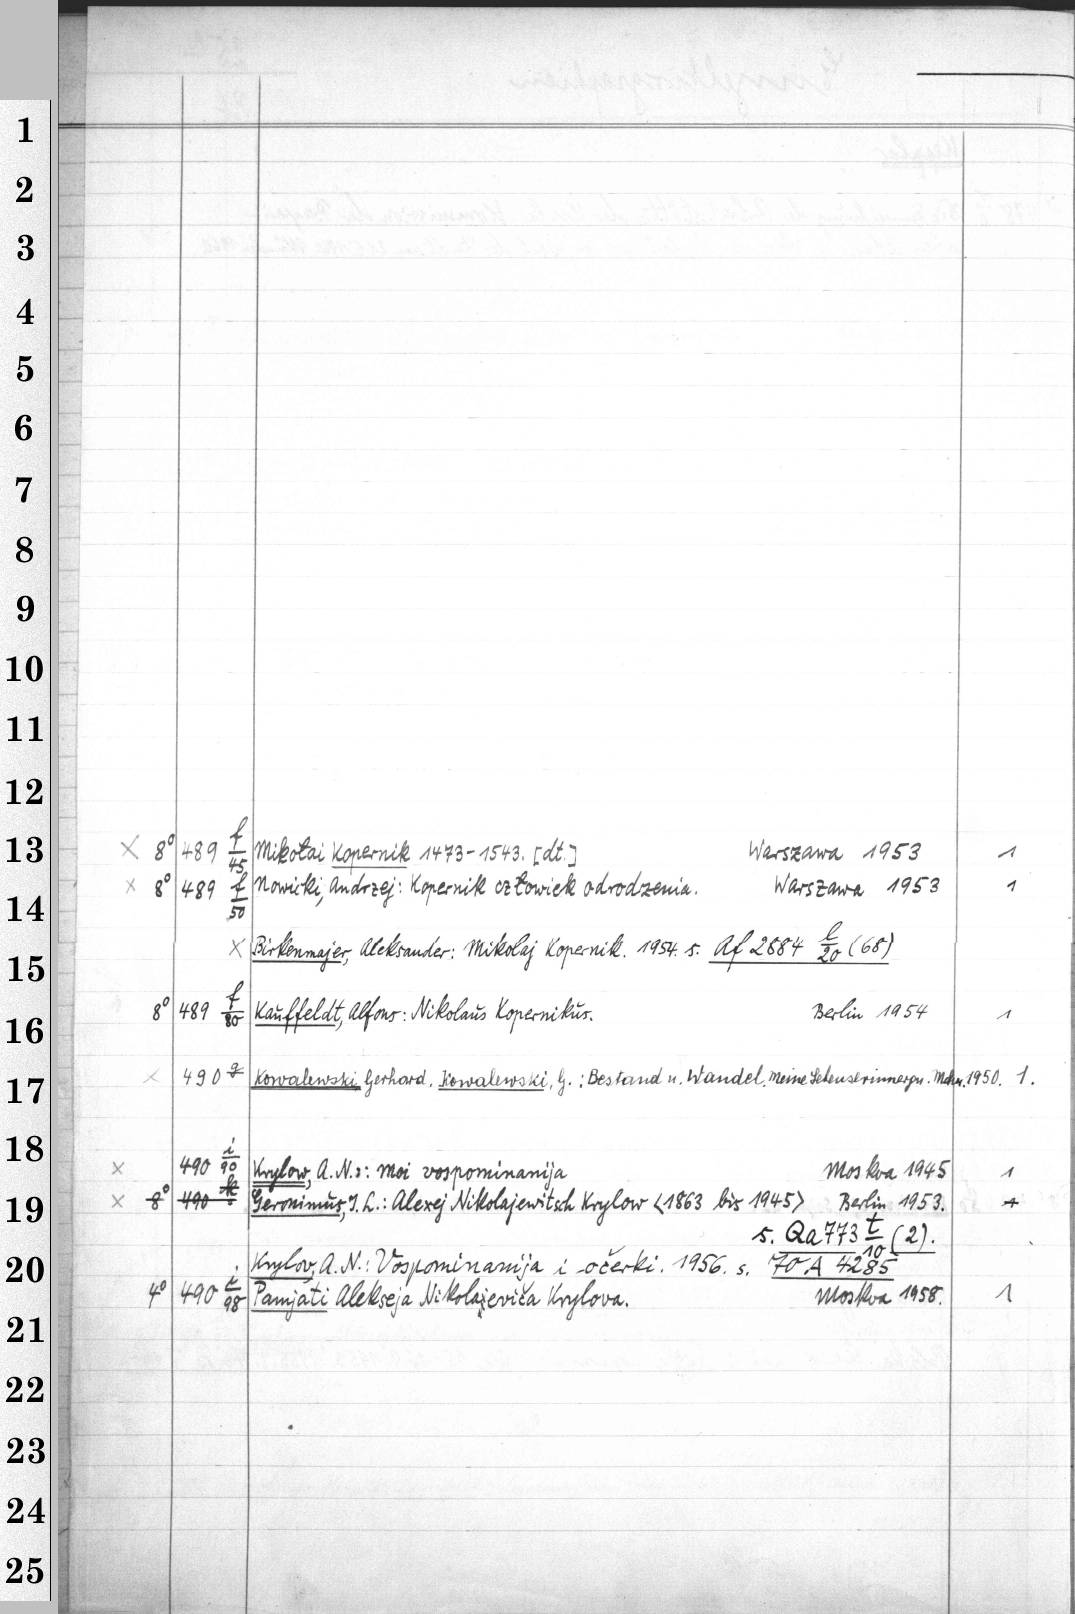 1
2
3
4
5
6
7
8
9
10
11
12
13 × 8° 489 f/45 Mikołai Kopernik 1473-1543. [dt.] Warszawa 1953 1
14 × 8° 489 f/50 Nowicki, Andrzej: Kopernik człowiek odrodzenia. Warszawa 1953 1
15 × Birkenmajer, Aleksander: Mikolaj Kopernik. 1954. s. Af 2684 l/20 (68)
16 8° 489 f/80 Kauffeldt, Alfons: Nikolaus Kopernikus. Berlin 1954 1
17 × 490 g Kowalewski, Gerhard. Kowalewski, G.: Bestand u. Wandel. Meine Lebenserinnergn. Mchn. 1950. 1.
18 × 490 i/90 Krylow, A.N.: Moi vospominanija Moskva 1945 1
19 × 8° 490 k Geronimus, J. L.: Alexej Nikolajewitsch Krylow <1863 bis 1945> Berlin 1953. 1
s. Qa 773 t/10 (2).
20 Krylov, A.N.: Vospominanija i očerki. 1956. s. 70 A 4285
4° 490 i/98 Pamjati Alekseja Nikolajeviča Krylova. Moskva 1958. 1
21
22
23
24
25